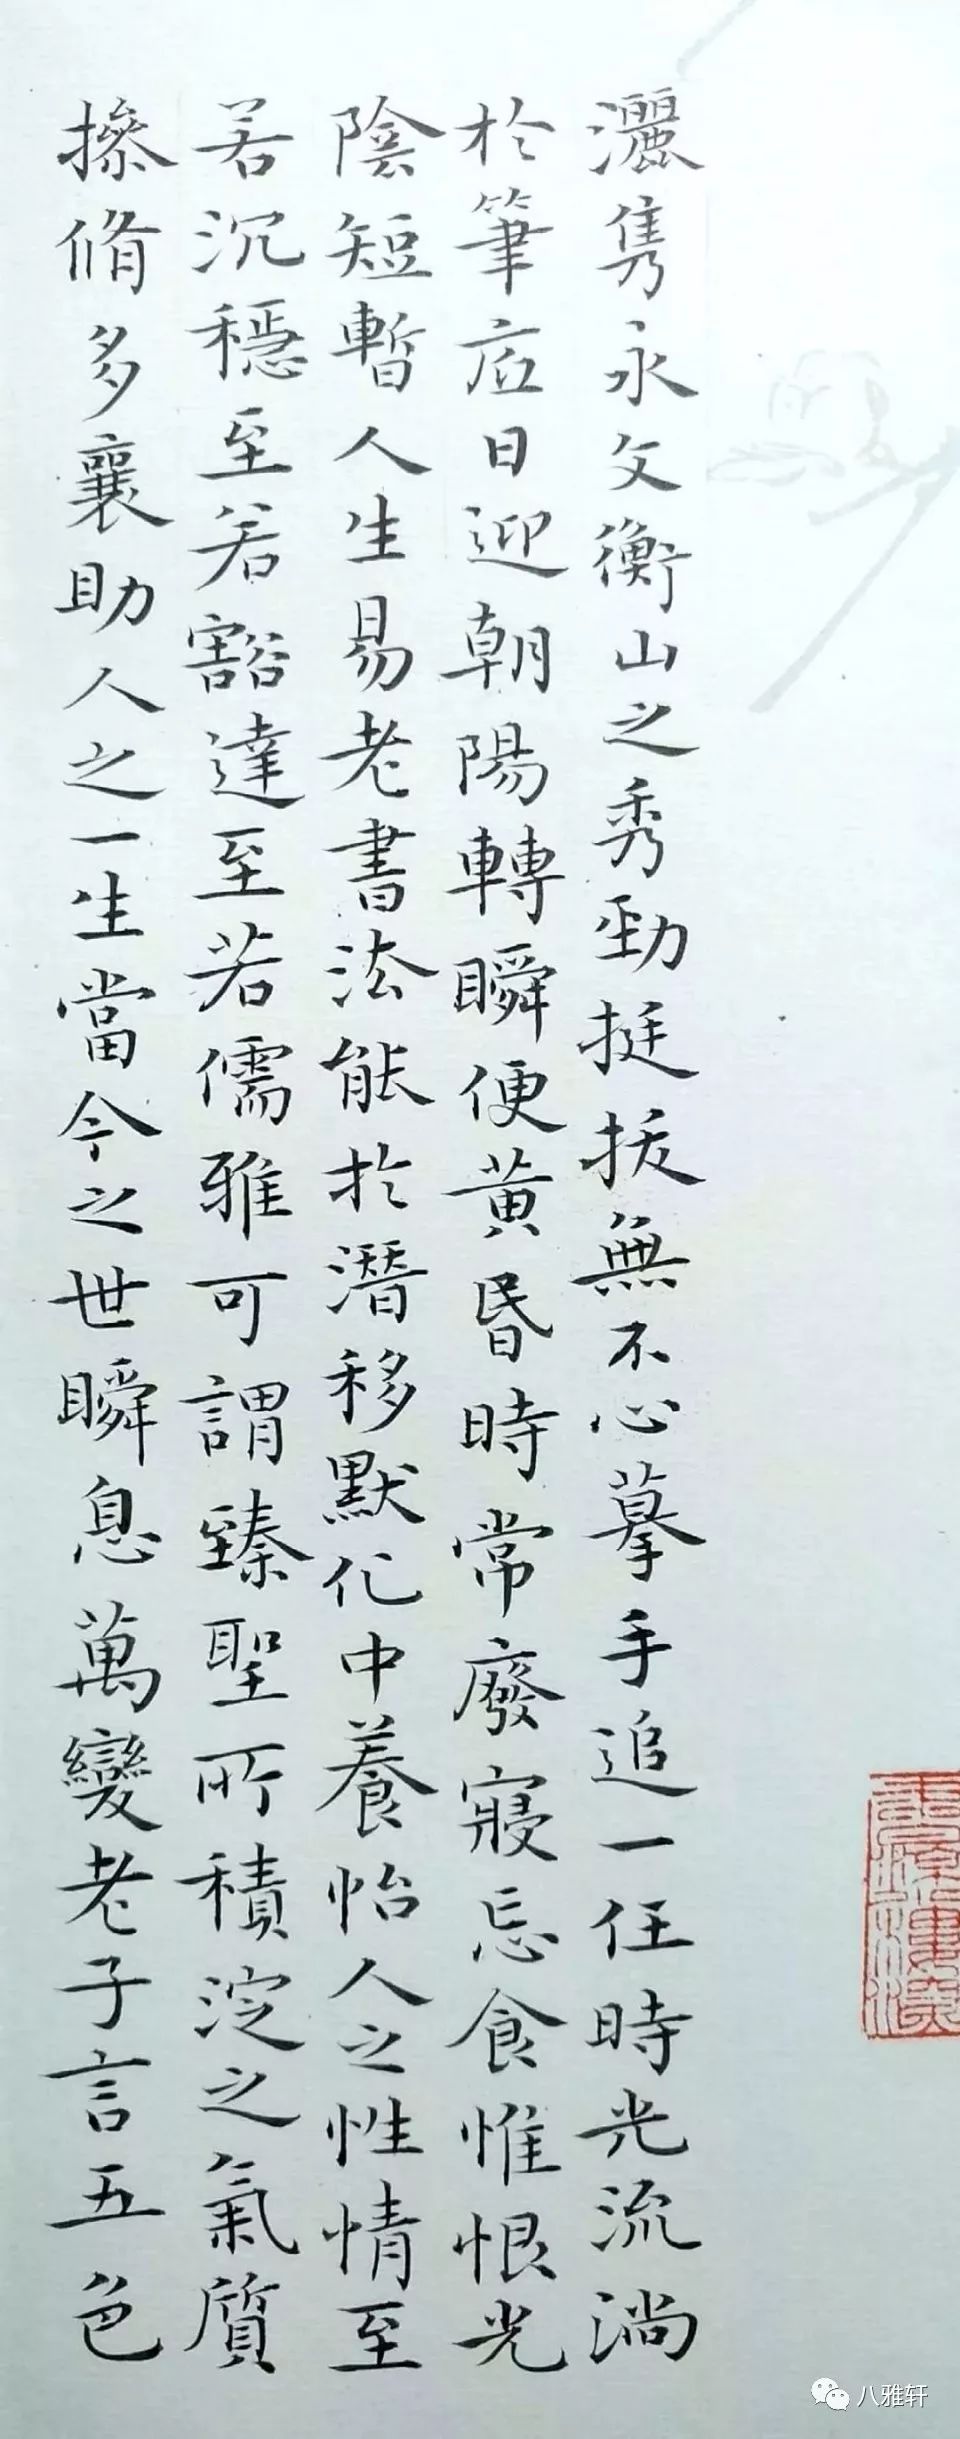 灑隽永文衡山之秀勁挺拔無不心摹手追一任時光流淌
於筆底日迎朝陽轉瞬便黃昏時常廢寢忘食惟恨光
陰短暫人生易老書法能於潛移默化中養怡人之性情至
若沉穩至若豁達至若儒雅可謂臻聖所積淀之氣質
操脩多襄助人之一生當今之世瞬息萬變老子言五色
八雅轩